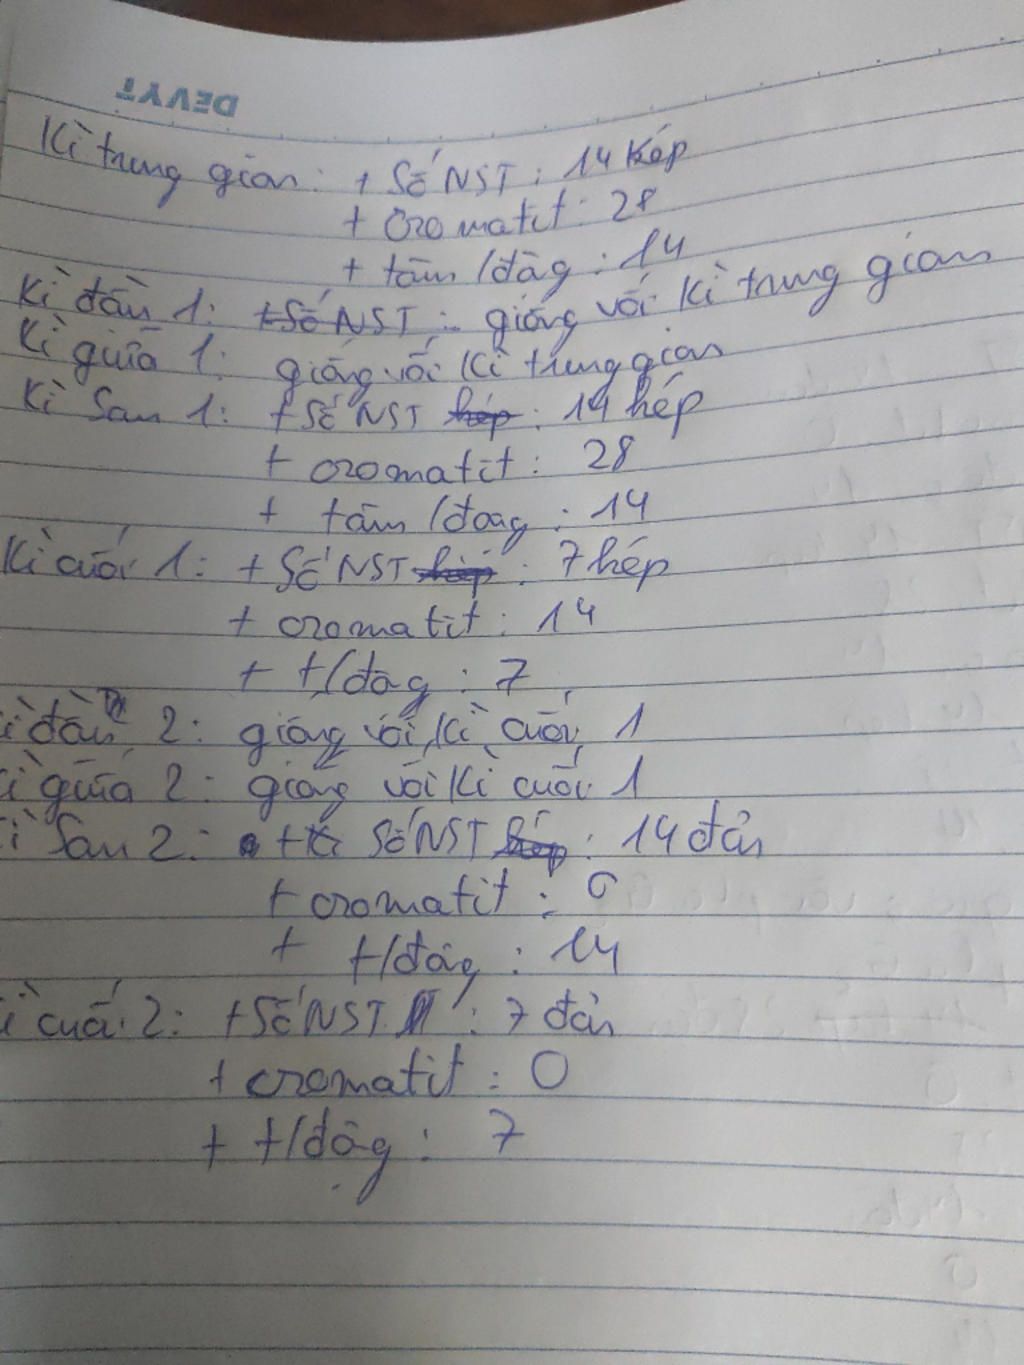 DEVYT
Kì trung gian: + Số NST: 14 kép
+ cromatit: 28
+ tâm/đàg: 14
Kì đần 1: + Số NST: giống với kì trung gian
Kì giữa 1: giống với kì trung gian
Kì San 1: + Số NST kép: 14 kép
+ cromatit: 28
+ tâm/đoàg: 14
Kì cuối 1: + Số NST kép: 7 kép
+ cromatit: 14
+ t/đàg: 7
ì đần 2: giống với kì cuối 1
ì giữa 2: giống với kì cuối 1
ì San 2: + Số NST kép: 14 đản
+ cromatit: 0
+ t/đàg: 14
ì cuối 2: + Số NST: 7 đản
+ cromatit: 0
+ t/đàg: 7